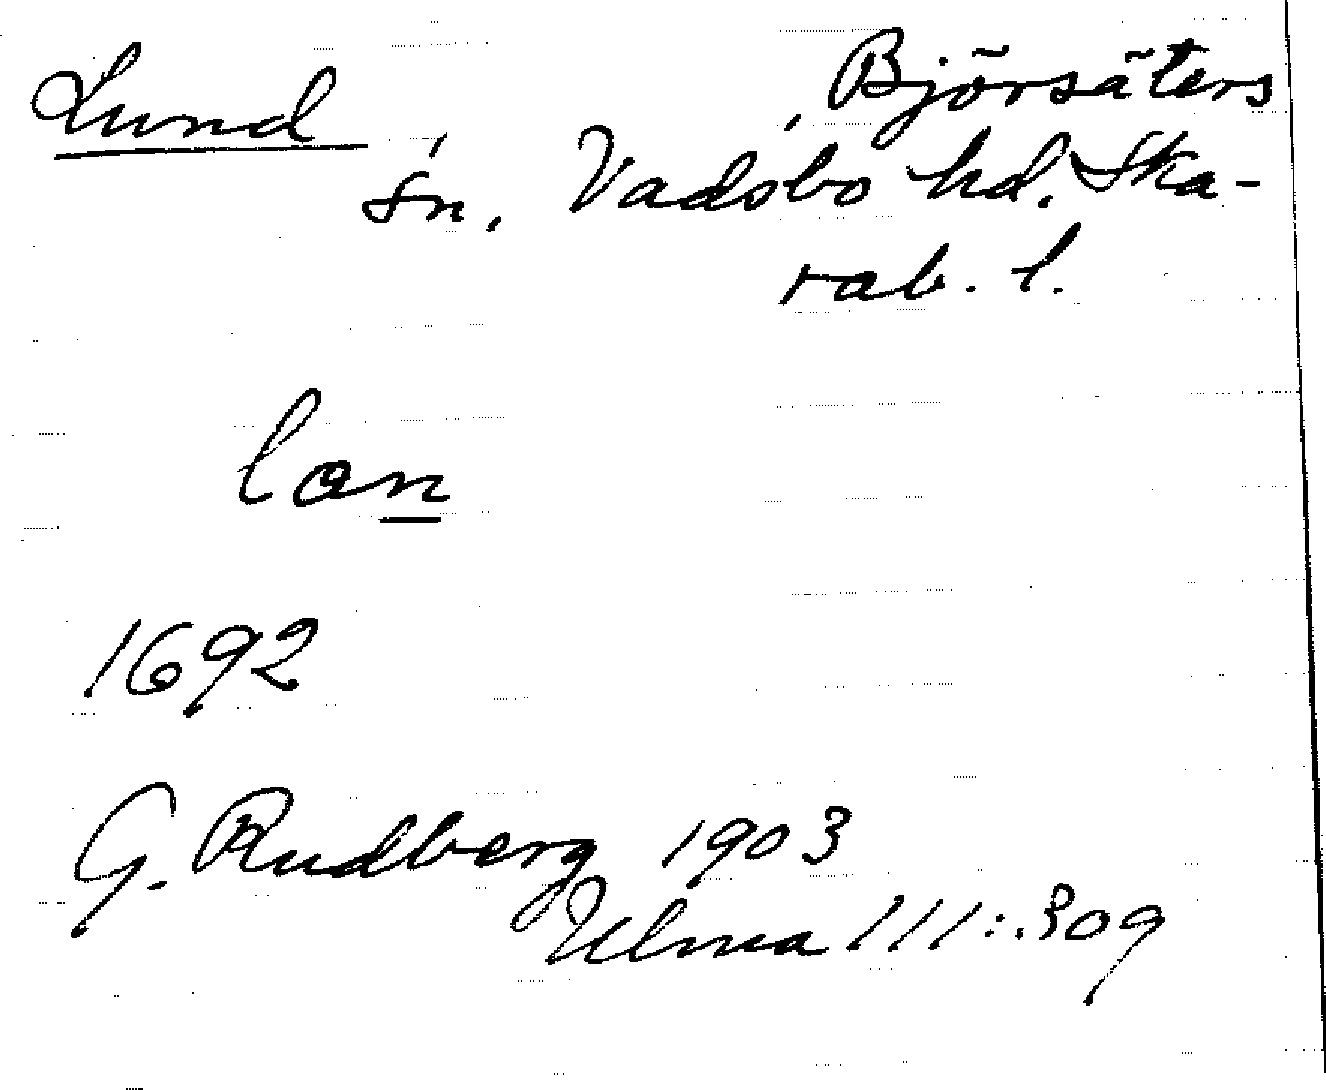 Lund, Björsäters
sn, Vadsbo hd. Ska-
rab. l.
lon
1692
G. Rudberg 1903
Ulma 111:309